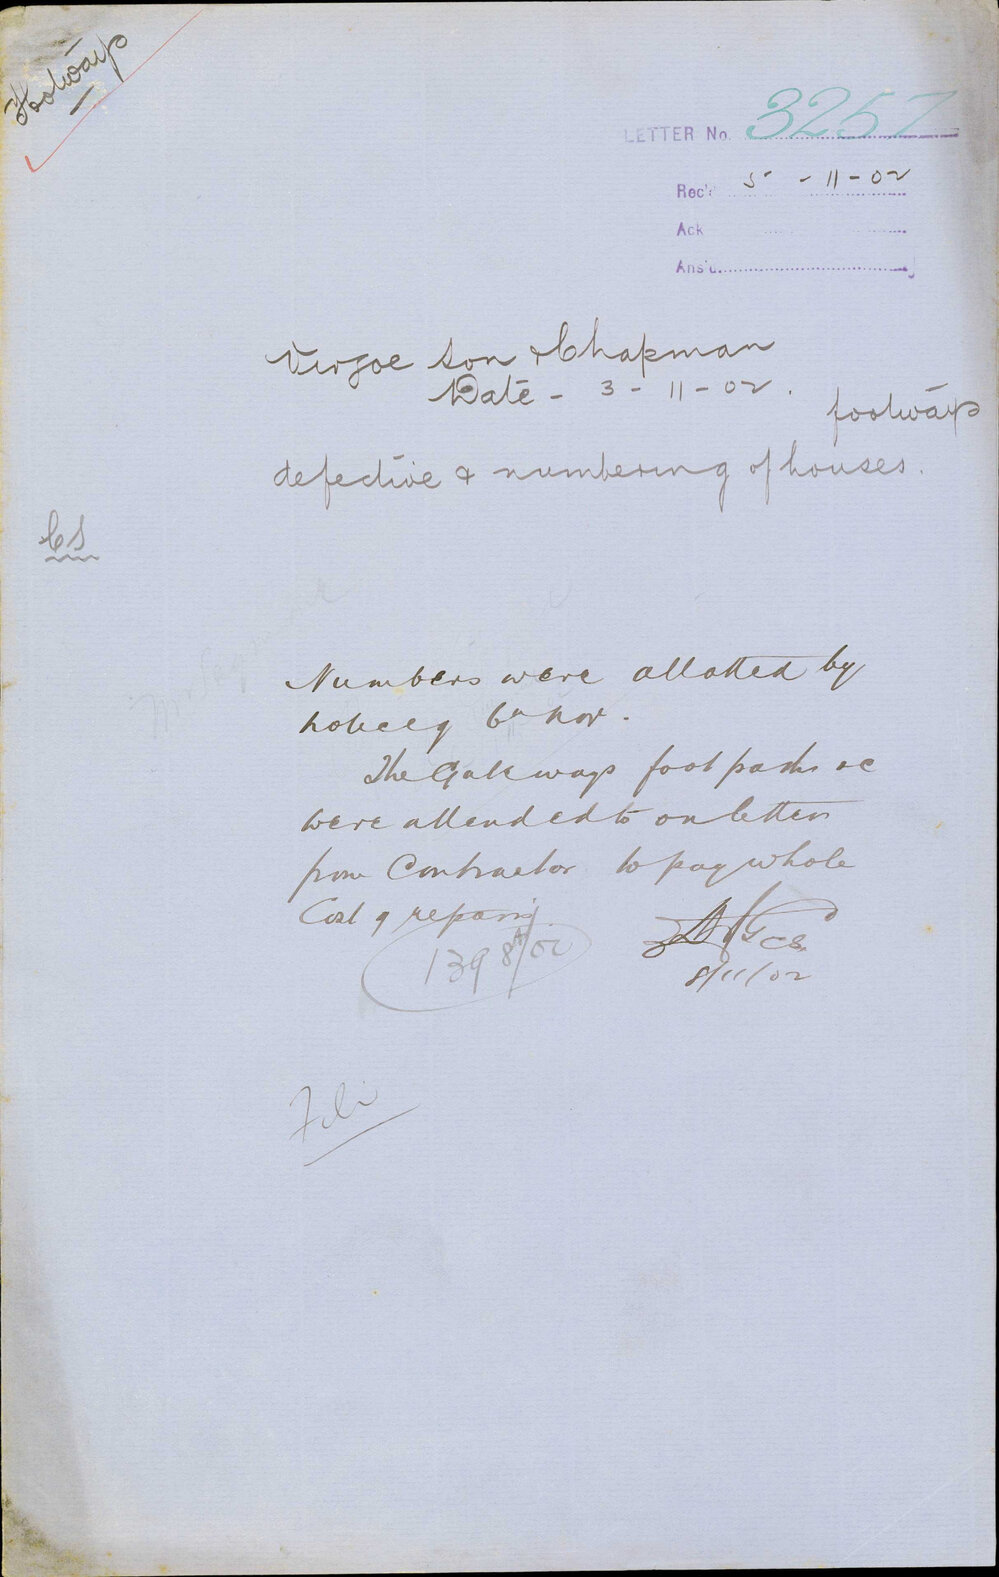 Footwaijs
LETTER No. 3257
Rec'd 5 - 11 - 02
Ack
Ans'd
Virgoe Son & Chapman
Date - 3 - 11 - 02.
footways
defective & numbering of houses.
CS
Numbers were allotted by
notice of 6th Nov.
The Gateways footpaths &c
were attended to on letter
from Contractor to pay whole
Cost of repairs
CS
1398/02
8/11/02
File